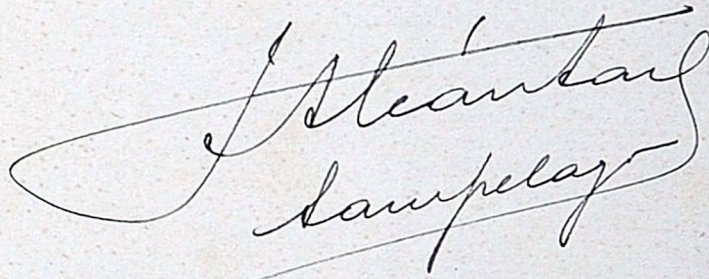 J Alcántara
Sampelayo